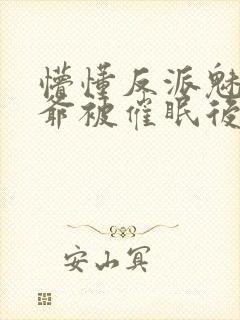 懵懂反派魅
爷被催眠后
安山冥